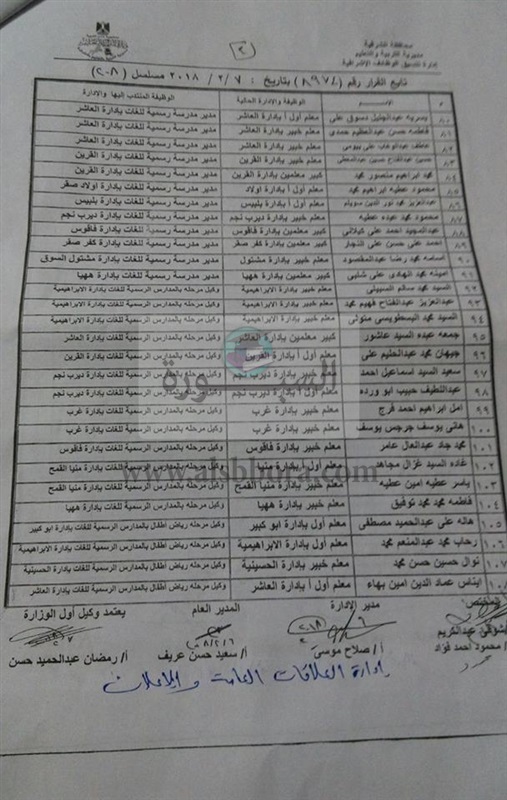 محافظة الشرقية
مديرية التربية والتعليم
إدارة تنسيق الوظائف الإشرافية
(٢)
تابع القرار رقم (٨٩٧٤) بتاريخ : ٢٠١٨/٢/٧ مسلسل (٢٠٨)
م الاســم الوظيفة والإدارة الحالية الوظيفة المنتدب إليها والإدارة
٨٠ يسريه عبدالجليل دسوقى على معلم أول أ بإدارة العاشر مدير مدرسة رسمية للغات بإدارة العاشر
٨١ فاطمه حسن عبدالعظيم حمدى معلم خبير بإدارة العاشر مدير مدرسة رسمية للغات بإدارة العاشر
٨٢ عاطف عبدالوهاب على بيومى معلم خبير بإدارة العاشر مدير مدرسة رسمية للغات بإدارة العاشر
٨٣ حسين عبدالفتاح حسين معلم خبير بإدارة القرين مدير مدرسة رسمية للغات بإدارة القرين
٨٤ محمد ابراهيم منصور محمد كبير معلمين بإدارة القرين مدير مدرسة رسمية للغات بإدارة القرين
٨٥ محمود عطيه ابراهيم محمد معلم أول أ بإدارة اولاد مدير مدرسة رسمية للغات بإدارة اولاد صقر
٨٦ عبدالعزيز محمد نور الدين سويلم معلم أول أ بإدارة بلبيس مدير مدرسة رسمية للغات بإدارة بلبيس
٨٧ محمود محمد عبده عطيه معلم خبير بإدارة ديرب نجم مدير مدرسة رسمية للغات بإدارة ديرب نجم
٨٨ عبدالمجيد احمد على كيلانى كبير معلمين بإدارة فاقوس مدير مدرسة رسمية للغات بإدارة فاقوس
٨٩ احمد على حسن على النجار كبير معلمين بإدارة كفر صقر مدير مدرسة رسمية للغات بإدارة كفر صقر
٩٠ اسامه محمد رضا عبدالمقصود معلم خبير بإدارة مشتول مدير مدرسة رسمية للغات بإدارة مشتول السوق
٩١ امينه محمد الهادى على شلبى كبير معلمين بإدارة ههيا مدير مدرسة رسمية للغات بإدارة ههيا
٩٢ السيد محمد سالم السبيلى معلم خبير بإدارة الابراهيمية وكيل مرحله بالمدارس الرسمية للغات بإدارة الابراهيمية
٩٣ عبدالعزيز عبدالفتاح فهيم محمد معلم خبير بإدارة الابراهيمية وكيل مرحله بالمدارس الرسمية للغات بإدارة الابراهيمية
٩٤ السيد محمد البسطويسى متولى معلم خبير بإدارة الابراهيمية وكيل مرحله بالمدارس الرسمية للغات بإدارة الابراهيمية
٩٥ جمعه عبده السيد عاشور كبير معلمين بإدارة العاشر وكيل مرحله بالمدارس الرسمية للغات بإدارة العاشر
٩٦ جيهان محمد عبدالحليم على معلم أول أ بإدارة القرين وكيل مرحله بالمدارس الرسمية للغات بإدارة القرين
٩٧ سعيد السيد اسماعيل احمد معلم خبير بإدارة ديرب نجم وكيل مرحله بالمدارس الرسمية للغات بإدارة ديرب نجم
٩٨ عبداللطيف حبيب ابو ورده معلم أول أ بإدارة ديرب نجم وكيل مرحله بالمدارس الرسمية للغات بإدارة ديرب نجم
٩٩ امل ابراهيم احمد فرج معلم خبير بإدارة غرب وكيل مرحله بالمدارس الرسمية للغات بإدارة غرب
١٠٠ هانى يوسف جرجس يوسف معلم خبير بإدارة غرب وكيل مرحله بالمدارس الرسمية للغات بإدارة غرب
١٠١ محمد جاد عبدالعال عامر معلم خبير بإدارة فاقوس وكيل مرحله بالمدارس الرسمية للغات بإدارة فاقوس
١٠٢ غاده السيد غزال مجاهد معلم أول أ بإدارة منيا وكيل مرحله بالمدارس الرسمية للغات بإدارة منيا القمح
١٠٣ ياسر عطيه امين عطيه معلم خبير بإدارة منيا القمح وكيل مرحله بالمدارس الرسمية للغات بإدارة منيا القمح
١٠٤ فاطمه محمد محمد توفيق معلم خبير بإدارة ههيا وكيل مرحله بالمدارس الرسمية للغات بإدارة ههيا
١٠٥ هاله على عبدالحميد مصطفى معلم أول بإدارة ابو كبير وكيل مرحله رياض أطفال بالمدارس الرسمية للغات بإدارة ابو كبير
١٠٦ رحاب محمد عبدالمنعم محمد معلم أول بإدارة الابراهيمية وكيل مرحله رياض أطفال بالمدارس الرسمية للغات بإدارة الابراهيمية
١٠٧ نوال حسين حسن محمد معلم خبير بإدارة الحسينية وكيل مرحله رياض أطفال بالمدارس الرسمية للغات بإدارة الحسينية
١٠٨ ايناس عماد الدين امين بهاء معلم أول أ بإدارة العاشر وكيل مرحله رياض أطفال بالمدارس الرسمية للغات بإدارة العاشر
المختص مدير الإدارة المدير العام يعتمد وكيل أول الوزارة
شوقى عبدالكريم
أ/ محمود احمد فؤاد أ/ صلاح موسى أ/ سعيد حسن عريف أ/ رمضان عبدالحميد حسن
إدارة العلاقات العامة والإعلان
السبورة
www.alsbbora.com